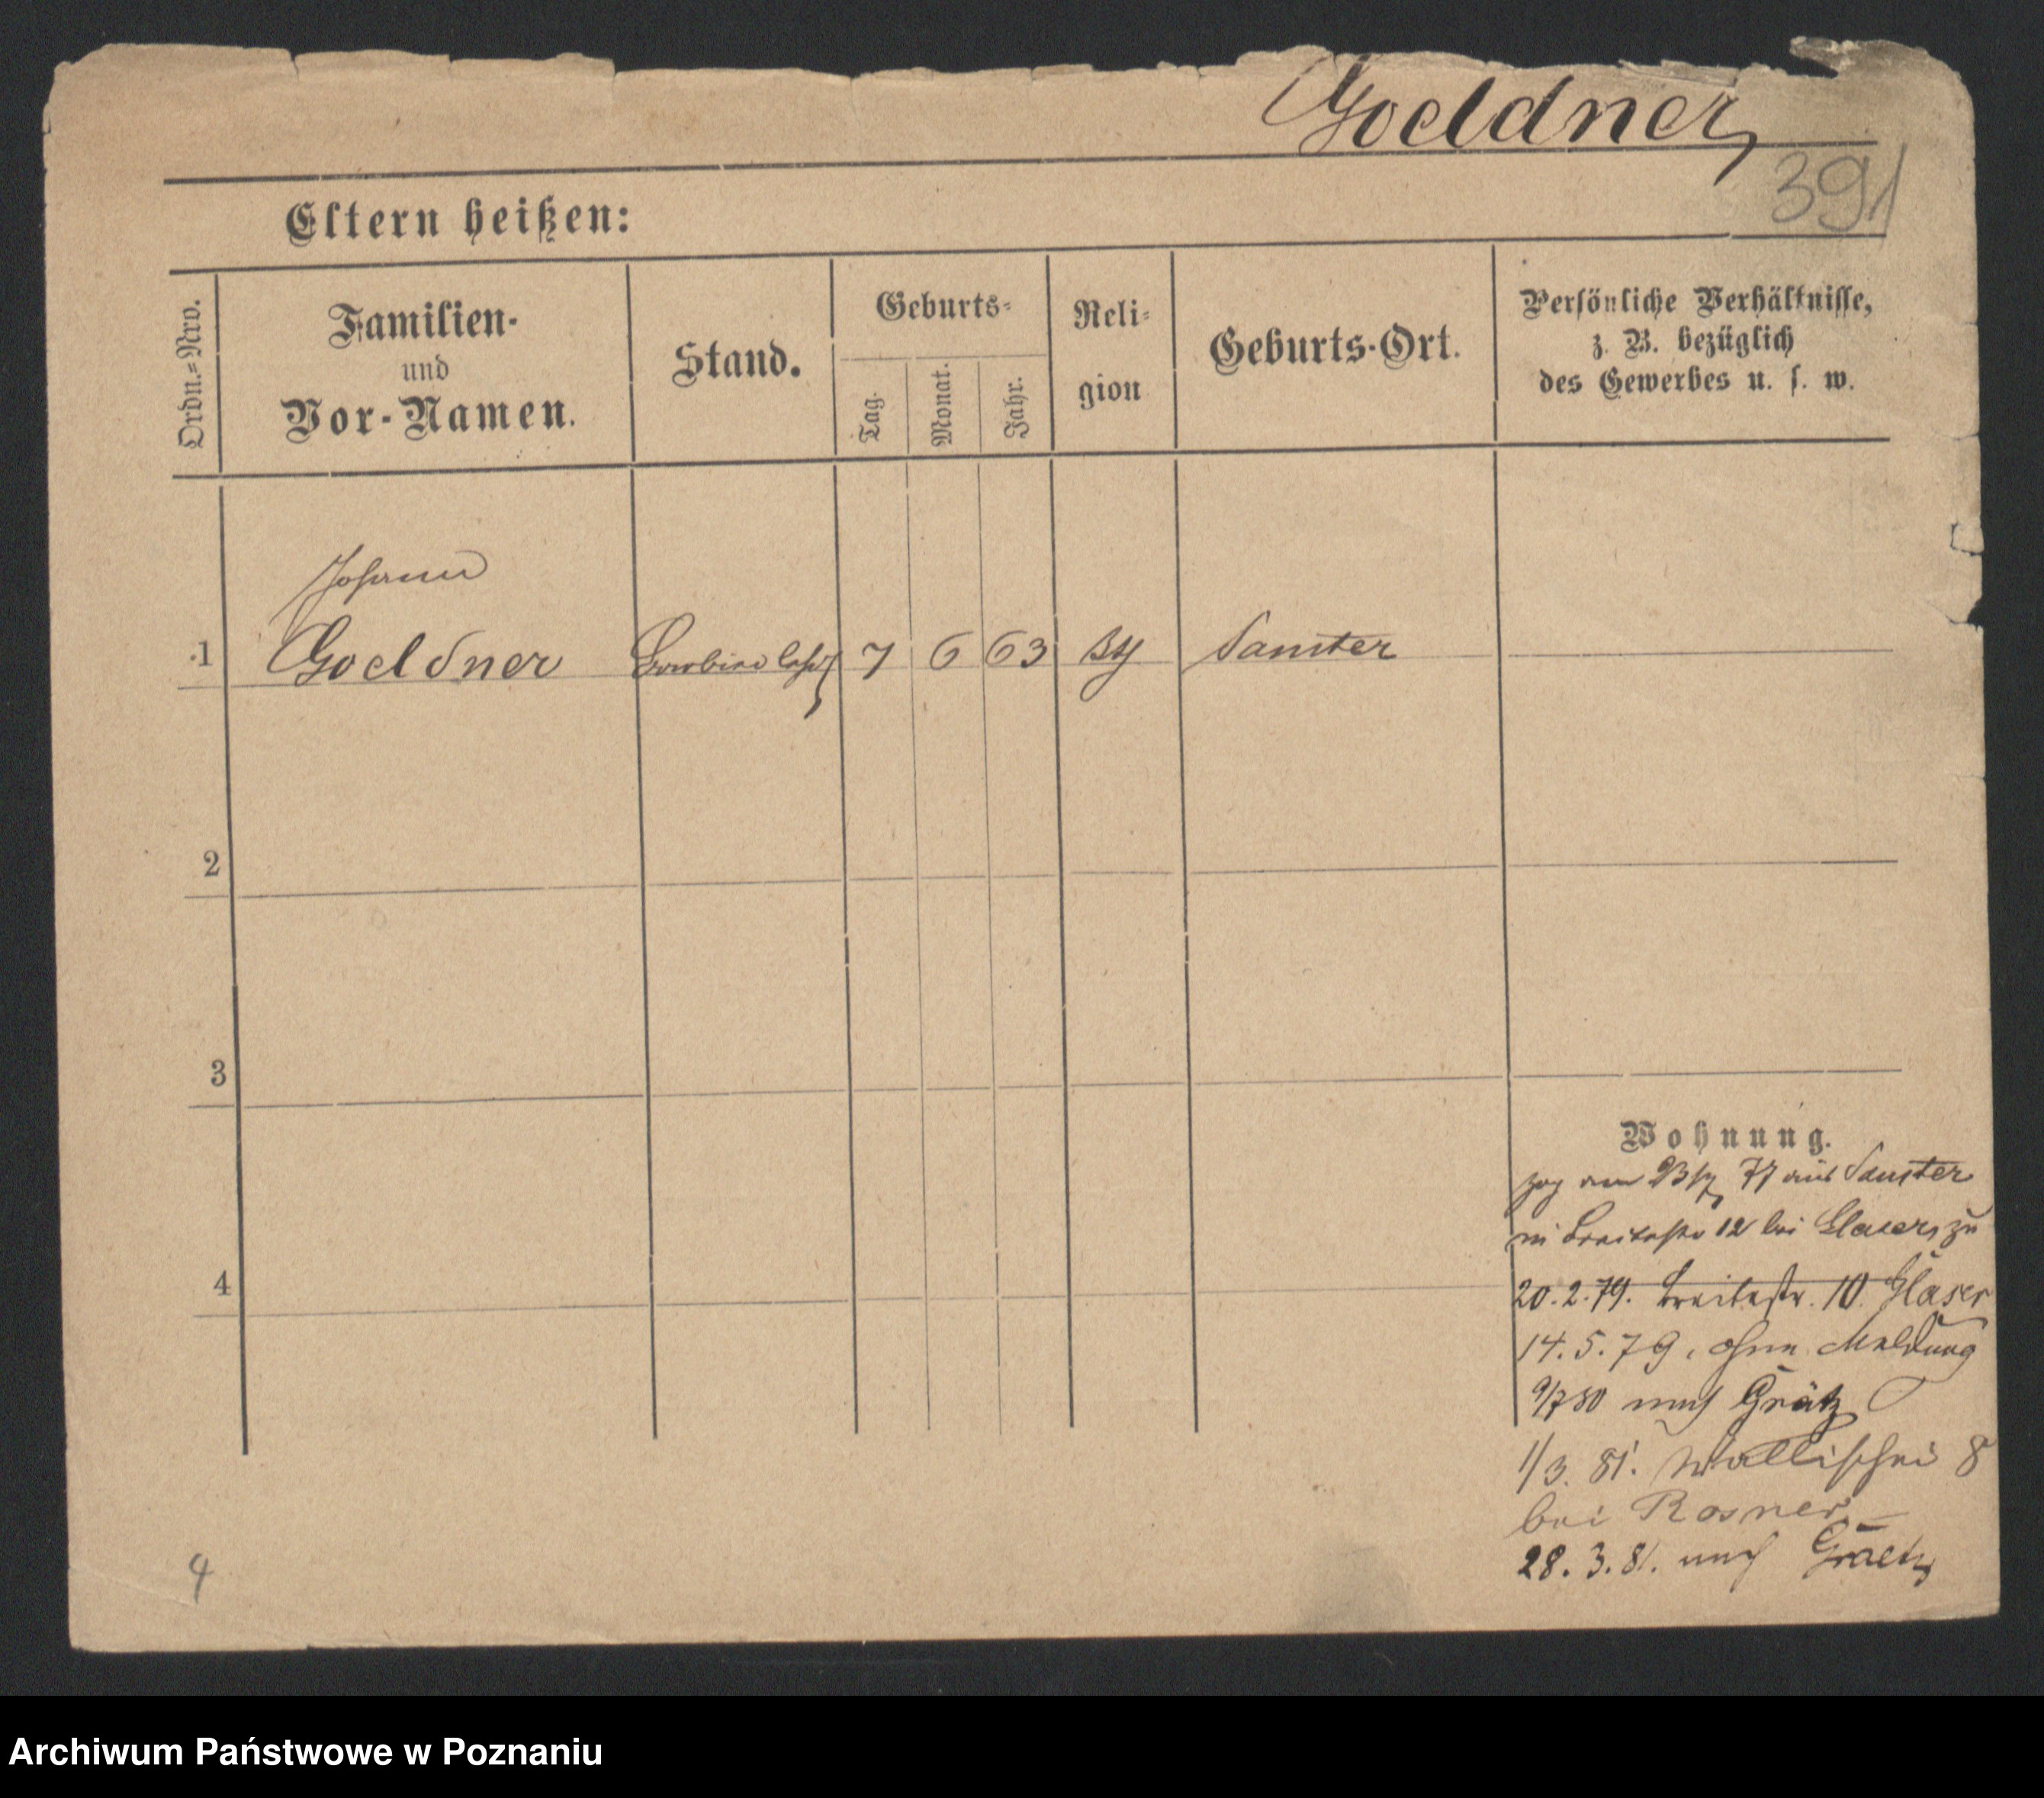 Goeldner
391
Eltern heißen:
Ordn.-Nro.
Familien-
und
Vor-Namen.
Stand.
Geburts-
Tag.
Monat.
Jahr.
Reli-
gion
Geburts-Ort.
Persönliche Verhältnisse,
z. B. bezüglich
des Gewerbes u. s. w.
Johann
1 Goeldner 7 6 63 Samter
2
3
4
Wohnung.
zog am 77 aus Samter
in Breitestr 12 bei Glaser zu
20.2.79. Breitestr. 10 Glaser
14.5.79. ohne Meldung
9/7 80 nach Grätz
1/3. 81. Wallischei 8
bei Rosner
28.3.81. nach Graetz
4
Archiwum Państwowe w Poznaniu